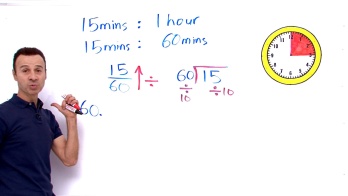 15mins : 1 hour
15mins : 60mins
15
60
÷
60 15
÷10 ÷10
60.